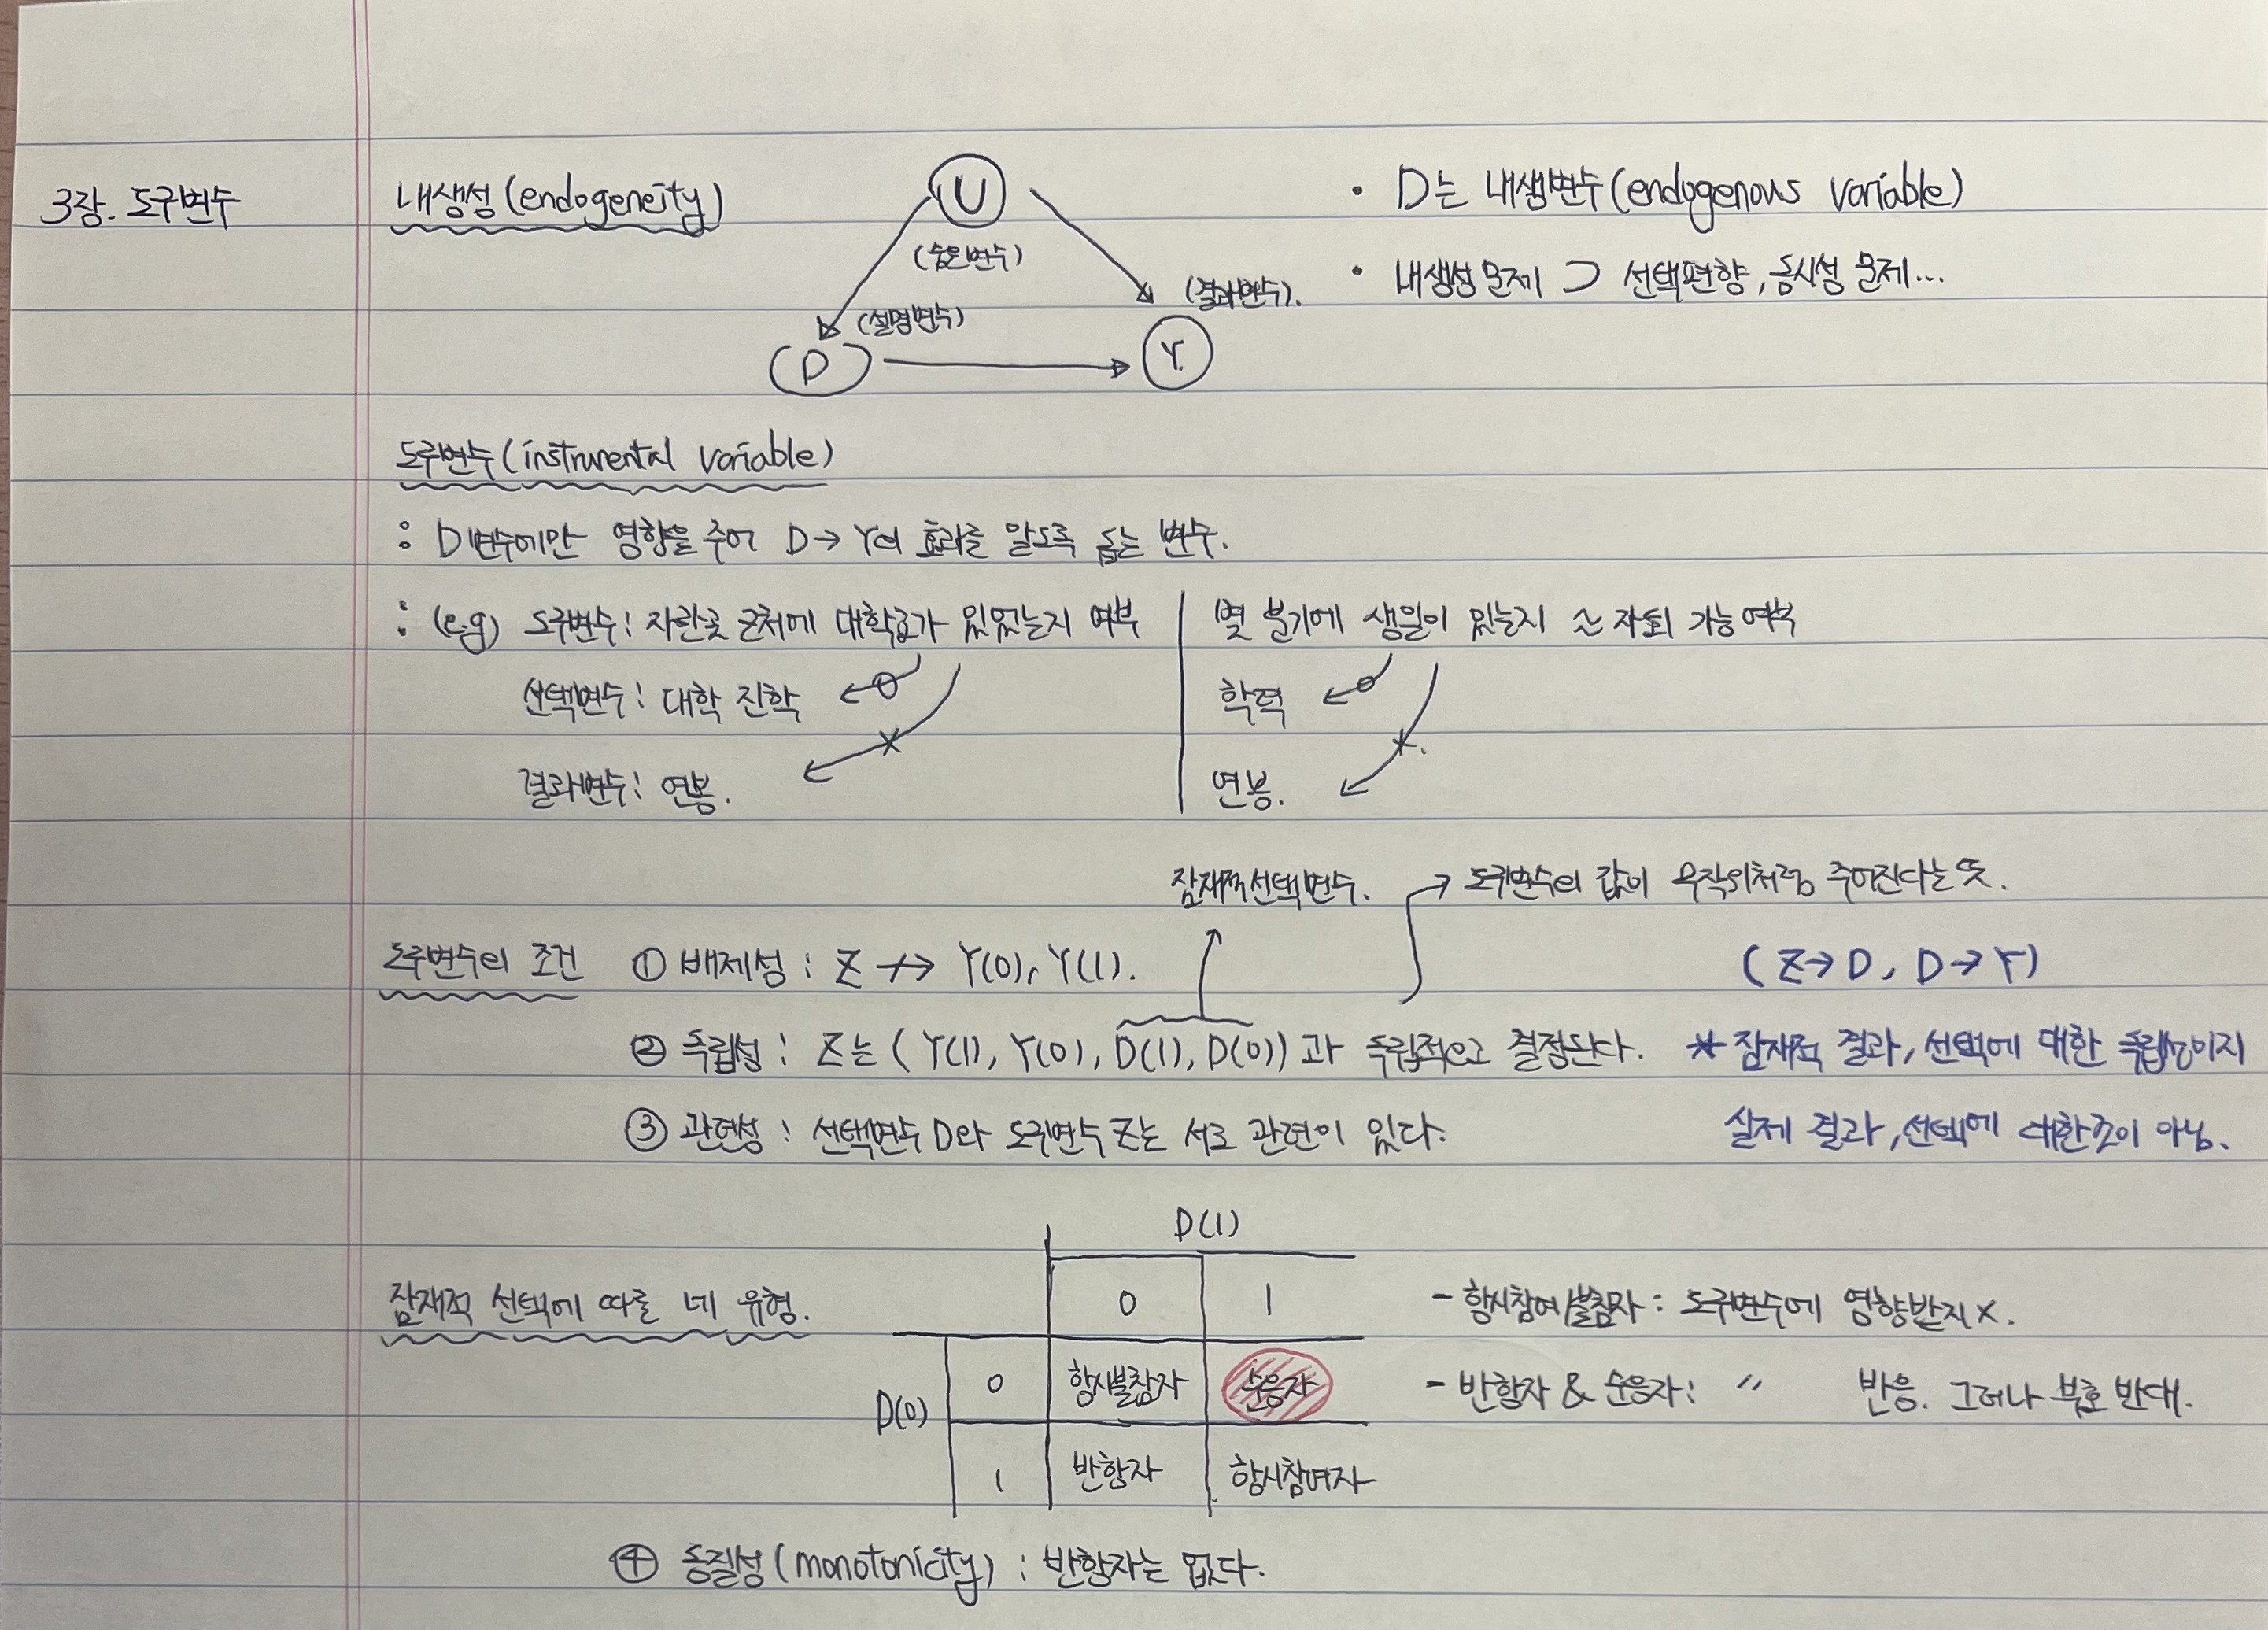 3장. 도구변수
내생성(endogeneity)
U
(숨은변수)
(설명변수)
(결과변수).
D
Y.
· D는 내생변수(endogenous variable)
· 내생성 문제 ⊃ 선택편향, 동시성 문제...
도구변수(instrumental variable)
: D변수에만 영향을 주어 D→Y의 효과를 알도록 돕는 변수.
: (e.g) 도구변수: 자란곳 근처에 대학교가 있었는지 여부
선택변수: 대학 진학
결과변수: 연봉.
몇 분기에 생일이 있는지 ≃ 자퇴 가능여부
학력
연봉.
잠재적선택변수.
→ 도구변수의 값이 무작위처럼 주어진다는 뜻.
도구변수의 조건 ① 배제성: Z ↛ Y(0), Y(1).
(Z→D, D→Y)
② 독립성: Z는 (Y(1), Y(0), D(1), D(0))과 독립적으로 결정된다.
* 잠재적 결과, 선택에 대한 독립성이지
③ 관련성: 선택변수 D와 도구변수 Z는 서로 관련이 있다.
실제 결과, 선택에 대한 것이 아님.
잠재적 선택에 따른 네 유형.
D(1)
0 1
D(0)
0 항시불참자 순응자
1 반항자 항시참여자
- 항시참여/불참자: 도구변수에 영향받지 x.
- 반항자 & 순응자: 〃 반응. 그러나 부호 반대.
④ 동질성(monotonicity): 반항자는 없다.